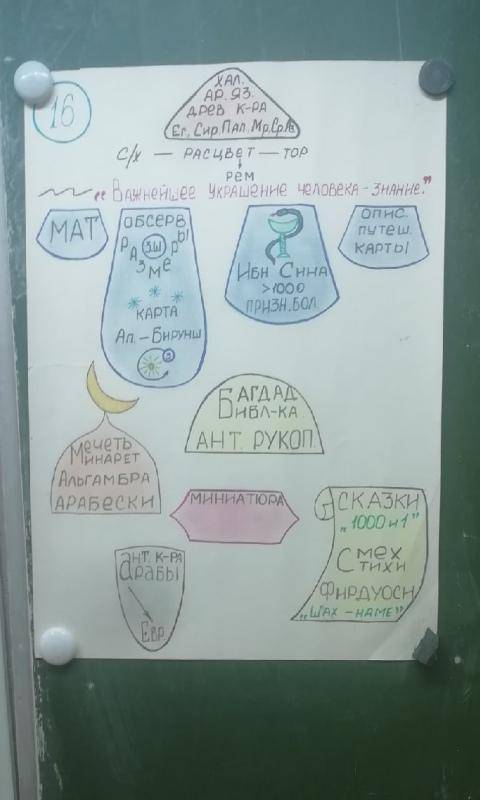 16
ХАЛ.
АР. ЯЗ.
ДРЕВ К-РА
Ег. Сир. Пал. Мр. Ср.Аз
С/Х — РАСЦВЕТ — ТОР
РЕМ
„ВАЖНЕЙШЕЕ УКРАШЕНИЕ ЧЕЛОВЕКА - ЗНАНИЕ."
МАТ
ОБСЕРВ
РАЗМЕРЫ
ЗШ
КАРТА
Ал.-БИРУНИ
З
ИБН СИНА
>1000
ПРИЗН. БОЛ.
ОПИС.
ПУТЕШ.
КАРТЫ
МЕЧЕТЬ
МИНАРЕТ
АЛЬГАМБРА
АРАБЕСКИ
БАГДАД
БИБЛ-КА
АНТ. РУКОП.
МИНИАТЮРА
СКАЗКИ
„1000 и 1"
СМЕХ
СТИХИ
ФИРДУОСИ
„ШАХ-НАМЕ"
АНТ. К-РА
АРАБЫ
ЕВР.